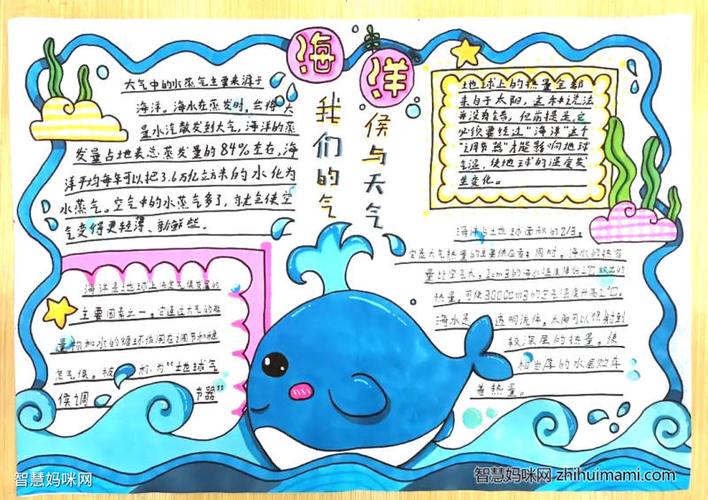 海洋
我们的气
候与天气
大气中的水蒸气主要来源于
海洋。海水在蒸发时，会将大
量水汽散发到大气，海洋的蒸
发量占地表总蒸发量的84%左右，海
洋平均每年可以把3.6万亿立方米的水化为
水蒸气。空气中的水蒸气多了，就气候空
气变得更轻薄、新鲜些。
地球上的热量全部
来自于太阳，这种说法
并没有全错，但前提是，它
必须要经过“海洋”这个
“调节器”才能影响地球
气温，使地球的温度发
生变化。
海洋是地球上决定气候发展的
主要因素之一，它通过大气的能
量和水的循环作用在调节和稳
定气候。被称为“地球气
候调节器”
海洋占地球面积的
它是大气热量的主要供应者；同时，海水的热容
量比空气大，1cm3的海水温度降低1℃放出的
热量，可使3000cm3的空气温度升高1℃。
海水是透明流体，太阳可以传射到
较深层的热量，使
相当厚的水层贮存
着热量。
智慧妈咪网
智慧妈咪网 zhihuimami.com